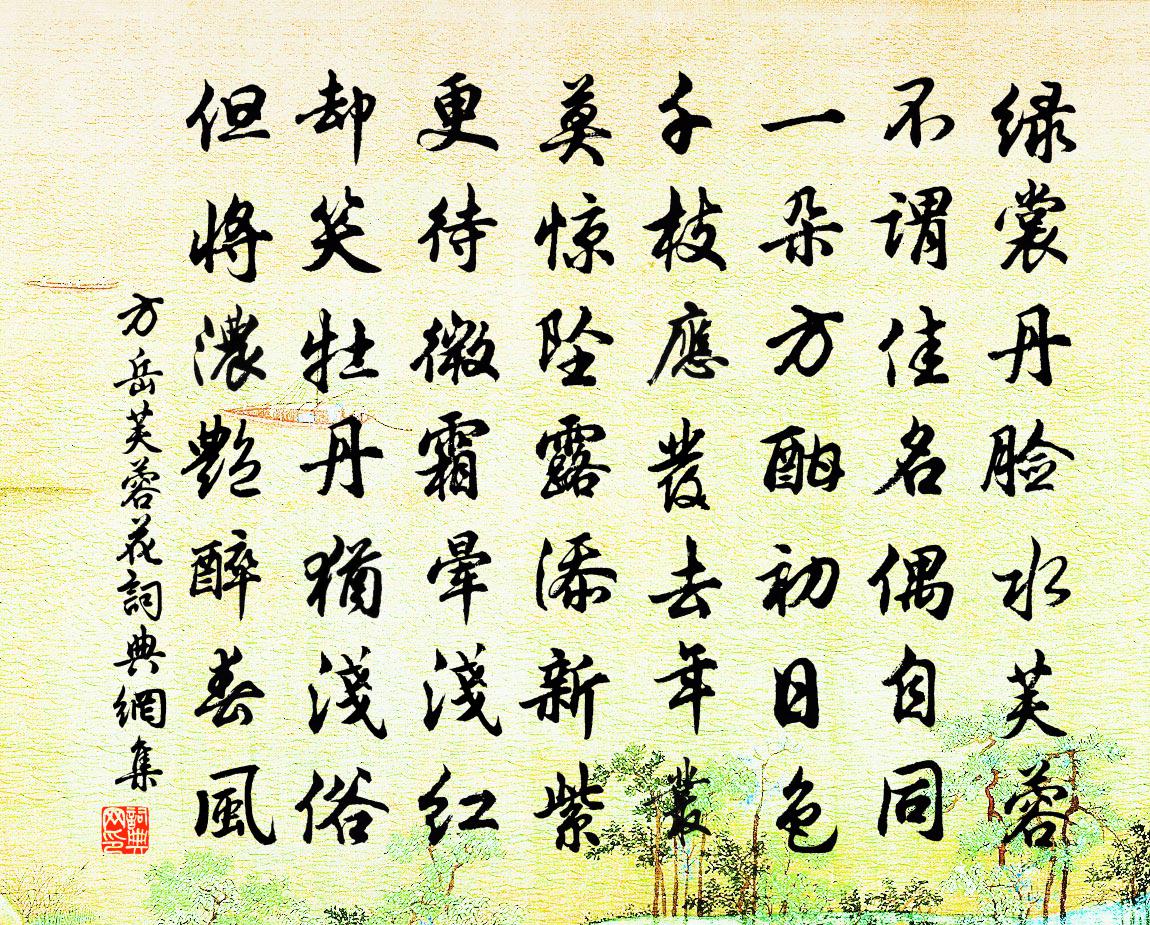 绿裳丹脸水芙蓉
不謂佳名偶自同
一朵方酣初日色
千枝應發去年叢
莫惊坠露添新紫
更待微霜暈淺红
却笑牡丹猶淺俗
但將濃艷醉春風
方岳芙蓉花詞典網集
詞典网印